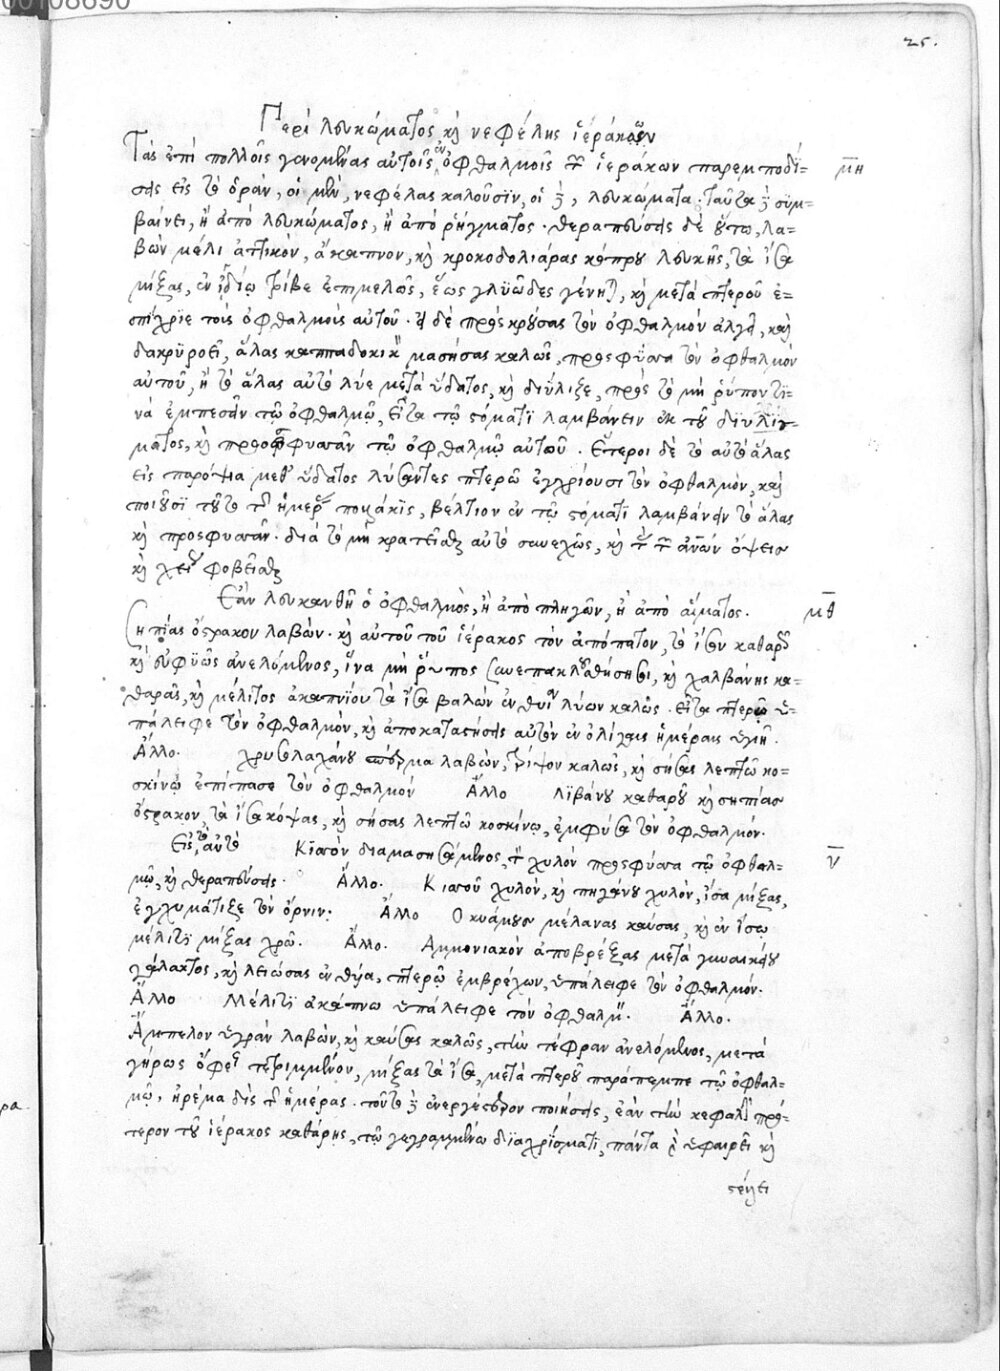 00108690
25.
Περὶ λευκώματος καὶ νεφέλης ἱεράκων
Τὰς ἐπὶ πολλοῖς γενομένας αὐτοῖς ἐν ὀφθαλμοῖς τῶν ἱεράκων παρεμποδί= μη
εἰς τὸ ὁρᾶν, οἱ μὲν, νεφέλας καλοῦσϊν, οἱ δὲ, λευκώματα. ταῦτα δὲ συμ=
βαίνει, ἢ ἀπὸ λευκώματος, ἢ ἀπὸ ῥήγματος. θεραπεύσεις δὲ οὕτω, λα=
βὼν μέλι ἀττικὸν, ἄκαπνον, καὶ κροκοδολιάρας κόπρου λευκῆς, τὰ ἴσα
μίξας, ἐν ἰγδίῳ τρίβε ἐπιμελῶς, ἕως γλϋῶδες γένηται, καὶ μετὰ πτεροῦ ἐ=
πίχριε τοῖς ὀφθαλμοῖς αὐτοῦ. εἰ δὲ προςκρούσας τὸν ὀφθαλμὸν ἀλγεῖ, καὶ
δακρϋροεῖ, ἅλας καππαδοκικὸν μασήσας καλῶς, προςφύσα τὸν ὀφθαλμὸν
αὐτοῦ, ἢ τὸ ἅλας αὐτὸ λύε μετὰ ὕδατος, καὶ διΰλιζε, πρὸς τὸ μὴ ῥύπον τϊ=
νὰ ἐμπεσεῖν τῷ ὀφθαλμῷ, εἶτα τῷ στόματϊ λαμβάνειν ἐκ τοῦ διϋλίσ-
ματος, καὶ προσεμφυσᾶν τῷ ὀφθαλμῷ αὐτοῦ. Ἕτεροι δὲ τὸ αὐτὸ ἅλας
εἰς παρόψια μεθ' ὕδατος λύσαντες πτερῷ ἐγχρίουσι τὸν ὀφθαλμὸν, καὶ
ποιοῦσϊ τοῦτο τῆς ἡμέρας πολλάκϊς, βέλτιον ἐν τῷ στόματϊ λαμβάνειν τὸ ἅλας
καὶ προσφυσᾶν. διὰ τὸ μὴ κρατεῖσθαι αὐτὸ συνεχῶς, καὶ τὰς τῶν ἀνων ὄψεις
καὶ χεῖρας φοβεῖσθαι
Ἐὰν λευκανθῆ ὁ ὀφθαλμὸς, ἢ ἀπὸ πληγῶν, ἢ ἀπὸ αἵματος. μθ
Σηπίας ὄστρακον λαβὼν. καὶ αὐτοῦ τοῦ ἱέρακος τὸν ἀπόπατον, τὸ ἴσον καθαρῶς
καὶ εὐφϋῶς ἀνελόμενος, ἵνα μὴ ῥύπος συνεπακλουθήσησι, καὶ χαλβάνης κα=
θαρᾶς, καὶ μέλιτος ἀκαπνίου τὰ ἴσα βαλὼν ἐν θυίᾳ λύων καλῶς. εἶτα πτερῷ ὑ=
πάλειφε τὸν ὀφθαλμὸν, καὶ ἀποκαταστήσεις αὐτὸν ἐν ὀλίγαις ἡμέραις ὑγιῆ.
Ἄλλο. χρυσολαχάνου σπέρμα λαβὼν, τρίψον καλῶς, καὶ σήσας λεπτῷ κο=
σκίνῳ ἐπίπασε τὸν ὀφθαλμόν Ἄλλο λϊβάνου καθαροῦ καὶ σηπίας
ὄστρακον, τὰ ἴσα κόψας, καὶ σήσας λεπτῷ κοσκίνῳ, ἐμφύσα τὸν ὀφθαλμόν.
Εἰς τὸ αὐτὸ Κϊσσὸν διαμασησάμενος, τὸν χυλὸν προςφύσα τῷ ὀφθαλ= ν
μῷ, καὶ θεραπεύσεις. Ἄλλο. Κισσοῦ χυλὸν, καὶ πηγάνου χυλὸν, ἴσα μίξας,
ἐγχυμάτιζε τὸν ὄρνιν: Ἄλλο Ὁ κυάμους μέλανας καύσας, καὶ ἐν ἴσῳ
μέλιτϊ μίξας χρῶ. Ἄλλο. Ἀμμονιακὸν ἀποβρέξας μετὰ γυναικείου
γάλακτος, καὶ λειώσας ἐν θυΐα, πτερῷ ἐμβρέχων, ὑπάλειφε τὸν ὀφθαλμόν.
Ἄλλο Μέλιτϊ ἀκάπνω ὑπάλειφε τὸν ὀφθαλμόν. Ἄλλο.
Ἄμπελον ὑγρὰν λαβὼν, καὶ καύσας καλῶς, τὴν τέφραν ἀνελόμενος, μετὰ
γήρως ὄφεως τετριμμένου, μίξας τὰ ἴσα, μετὰ πτεροῦ παράπεμπε τῷ ὀφθαλ=
μῷ, ἠρέμα δὶς τῆς ἡμέρας. τοῦτο δὲ ἐνεργέστερον ποιήσεις, ἐὰν τὴν κεφαλὴν πρό=
τερον τοῦ ἱέρακος καθάρης, τῷ γεγραμμένω διαχρίσματϊ, πάντα ὑφαιρεῖ καὶ
ρα